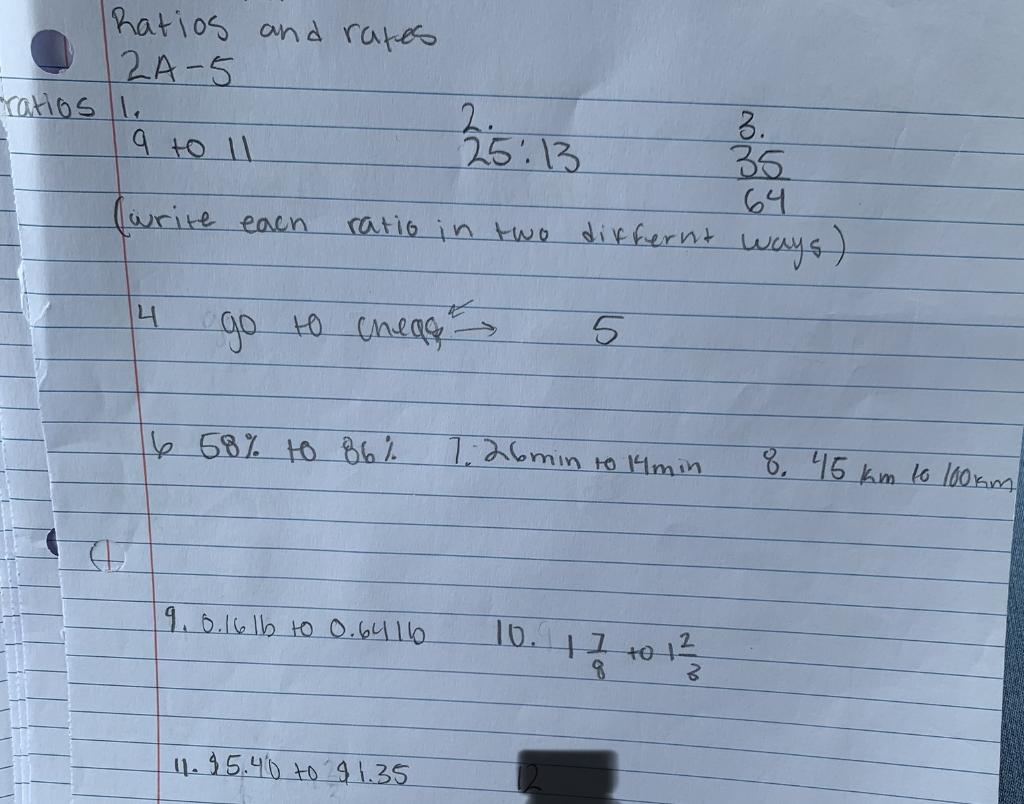 Ratios and rates
2A-5
ratios 1. 2. 3.
9 to 11 25:13 35/64
(write each ratio in two differnt ways)
4 go to → 5
6 58% to 86% 7. 26min to 14min 8. 45 km to 100km
9. 0.16 lb to 0.64 lb 10. 1 7/8 to 1 2/3
11. $5.40 to $1.35 12